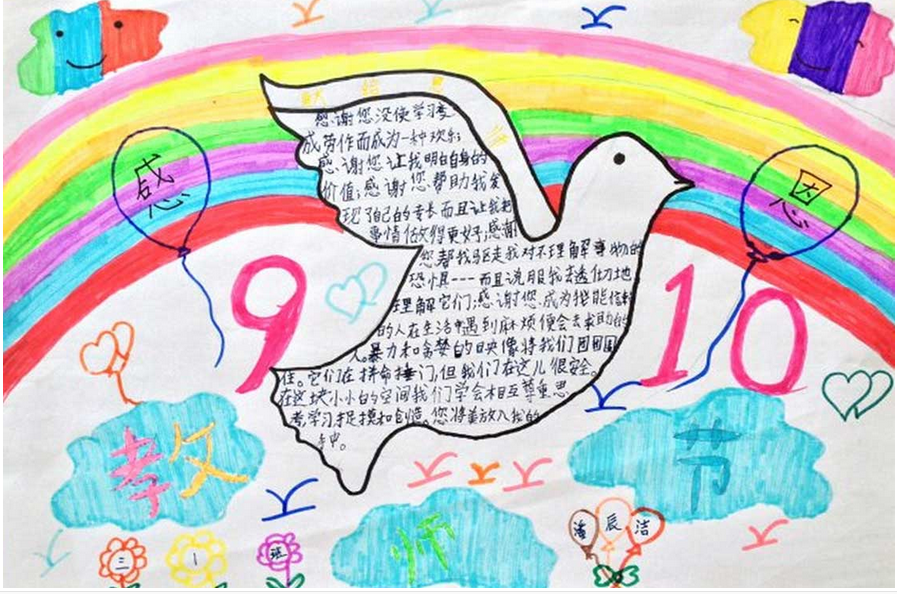 感
恩
9
10
感谢您没使学习变
成劳作而成为一种欢乐;
感谢您让我明白自身的
价值;感谢您帮助我发
现了自己的专长而且让我把
事情做得更好;感谢
您帮我驱走我对不理解事物的
恐惧---而且说服我去透彻地
理解它们;感谢您成为我能信赖
的人在生活中遇到麻烦便会去求助的
人。暴力和贪婪的映像将我们团团围
住。它们在拼命捶门,但我们在这儿很安全。
在这块小小的空间我们学会相互尊重思
考,学习捉摸和创造。您将美放入我的
手中。
教
师
节
三
1
班
潘
辰
洁